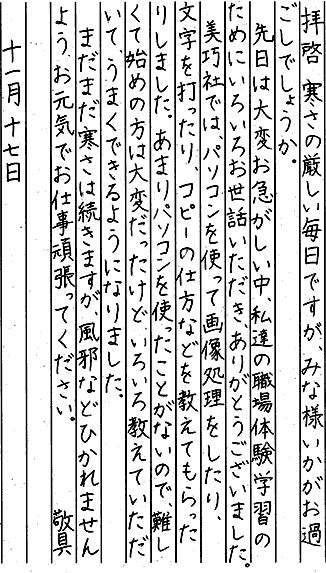 拝啓 寒さの厳しい毎日ですが、みな様いかがお過
ごしでしょうか。
先日は大変お急がしい中私達の職場体験学習の
ためにいろいろお世話いただき、ありがとうございました。
美巧社では、パソコンを使って画像処理をしたり、
文字を打ったり、コピーの仕方などを教えてもらった
りしました。あまりパソコンを使ったことがないので、難し
くて始めの方は大変だったけどいろいろ教えていただ
いて、うまくできるようになりました。
まだまだ寒さは続きますが、風邪などひかれません
よう、お元気でお仕事頑張ってください。 敬具
十一月十七日